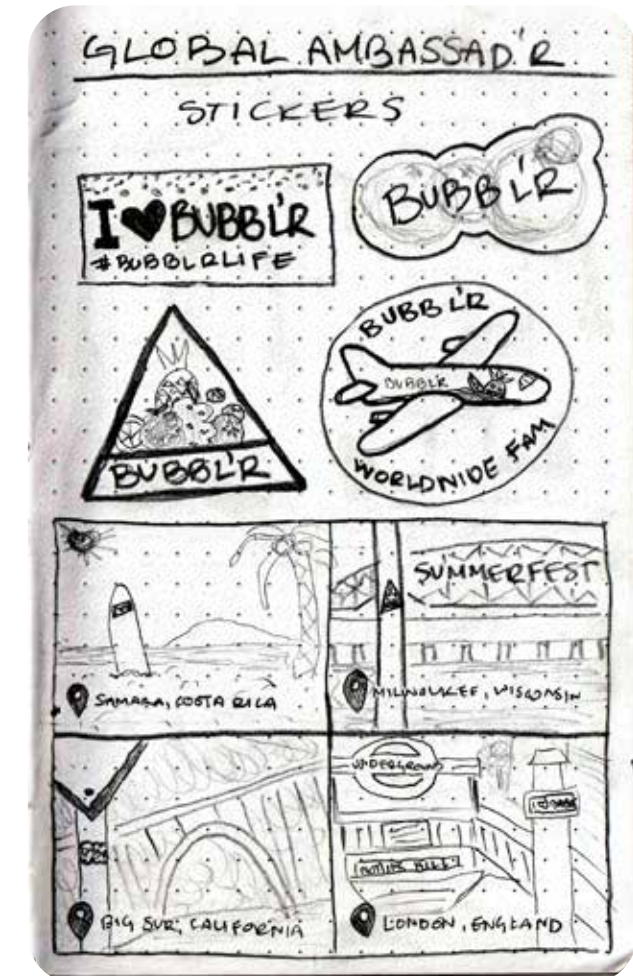 GLOBAL AMBASSAD'R
STICKERS
I ♥ BUBBL'R
#BUBBLRLIFE
BUBBL'R
BUBBL'R
BUBBL'R
BUBBL'R
WORLDWIDE FAM
SUMMERFEST
SAMARA, COSTA RICA
MILWAUKEE, WISCONSIN
UNDERGROUND
BIG SUR, CALIFORNIA
LONDON, ENGLAND